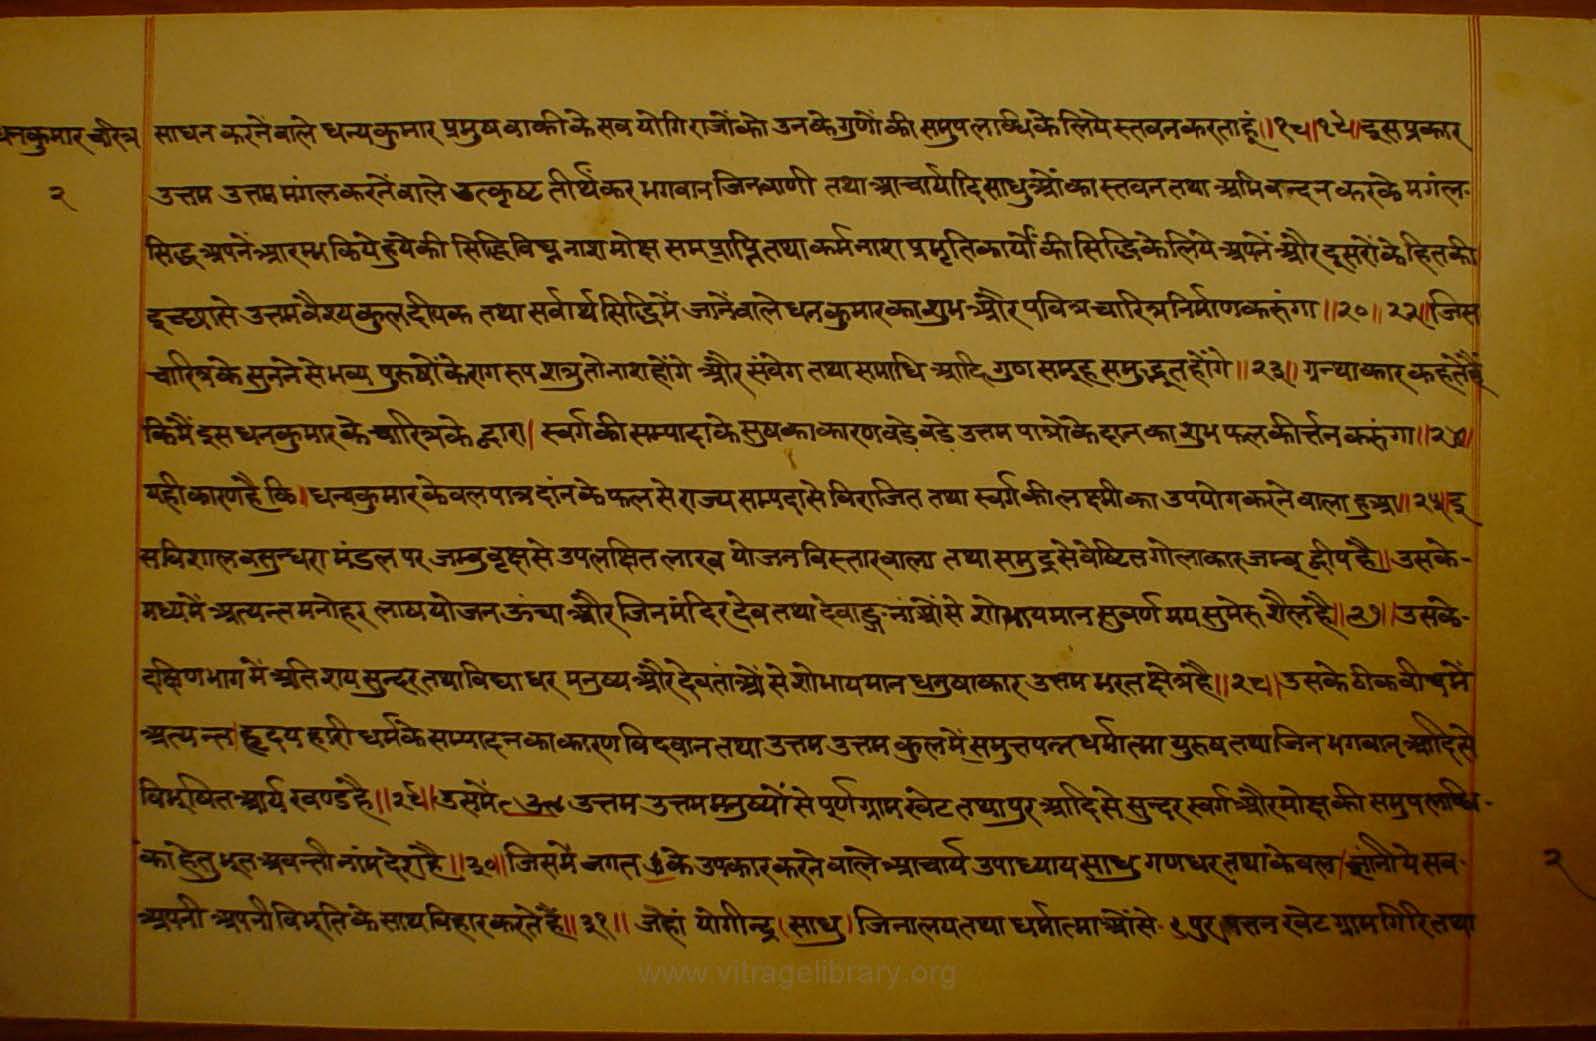 धनकुमार चरित्र
२
साधन करनें वाले धन्यकुमार प्रमुष वाकी के सव योगि राजों को उनके गुणों की समुपलाब्धि के लिये स्तवन करता हूं॥१८॥१९॥ इस प्रकार
उत्तम उत्तम मंगल करनें वाले उत्कृष्ट तीर्थंकर भगवान जिनवाणी तथा आचार्यादि साधुओं का स्तवन तथा अभिवन्दन करके मगंल-
सिद्ध अपनें आरम्भ किये हुये की सिद्धि विघ्न नाश मोक्ष सम प्राप्ति तथा कर्म नाश प्रभृति कार्यों की सिद्धि के लिये अपनें और दूसरों के हित की
इच्छा से उत्तम वैश्य कुल दीपक तथा सर्वार्थ सिद्धि में जानें वाले धनकुमार का शुभ और पवित्र चारित्र निर्माण करुंगा॥२०॥२२॥ जिस
चारित्र के सुनने से भव्य पुरुषों के राग रुप शत्रु तो नाश होंगे और संवेग तथा समाधि आदि गुण समूह समुद्भूत होंगे॥२३॥ ग्रन्थाकार कहते हैं
कि मैं इस धनकुमार के चारित्र के द्वारा। स्वर्ग की सम्पादा के सुष का कारण वड़े वड़े उत्तम पात्रो के दान का शुभ फल कीर्त्तन करुंगा॥२४॥
यही कारण है कि। धन्यकुमार केवल पात्र दांन के फल से राज्य साम्पदा से विराजित तथा स्वर्ग की लक्ष्मी का उपयोग करने वाला हुआ॥२५॥ इ
स विशाल वसुन्धरा मंडल पर जम्बुवृक्ष से उपलक्षित लाख योजन विस्तार वाला तथा समुद्र से वेष्टित गोलाकार जम्बू द्वीप है॥ उसके-
मध्य में अत्यन्त मनोहर लाष योजन ऊंचा और जिन मंदिर देव तथा देवाङ्ग-नांओं से शोभायमान सुवर्ण मय सुमेरु शैल है॥२७॥ उसके-
दक्षिण भाग में अतिशय सुन्दर तथा विद्या धर मनुष्य और देवतांओं से शोभायमान धनुषाकार उत्तम भरत क्षेत्र है॥२८॥ उसके ठीक वीच में
अत्यन्त। हृदय हारी धर्म के सम्पादन का कारण विदवान तथा उत्तम उत्तम कुल में समुत्तपन्न धर्मात्मा पुरुष तथा जिन भगवान् आदि से
विभूषित आर्य खण्ड है॥२९॥ उसमें उत्तम उत्तम मनुष्यों से पूर्ण ग्राम खेट तथा पुर आदि से सुन्दर स्वर्ग और मोक्ष की समुपलाब्धि-
का हेतु भूत अवन्ती नांम देश है॥३०॥ जिसमें जगत के उपकार करने वाले आचार्य उपाध्याय साधु गणधर तथा केवल। ज्ञांनी ये सव-
२
अपनी अपनी विभूति के साथ विहार करते हैं॥३१॥ जहां योगीन्द्र (साधु) जिनालय तथा धर्मात्माओं से- पुर पत्तन खेट ग्राम गिरि तथा
www.vitragelibrary.org